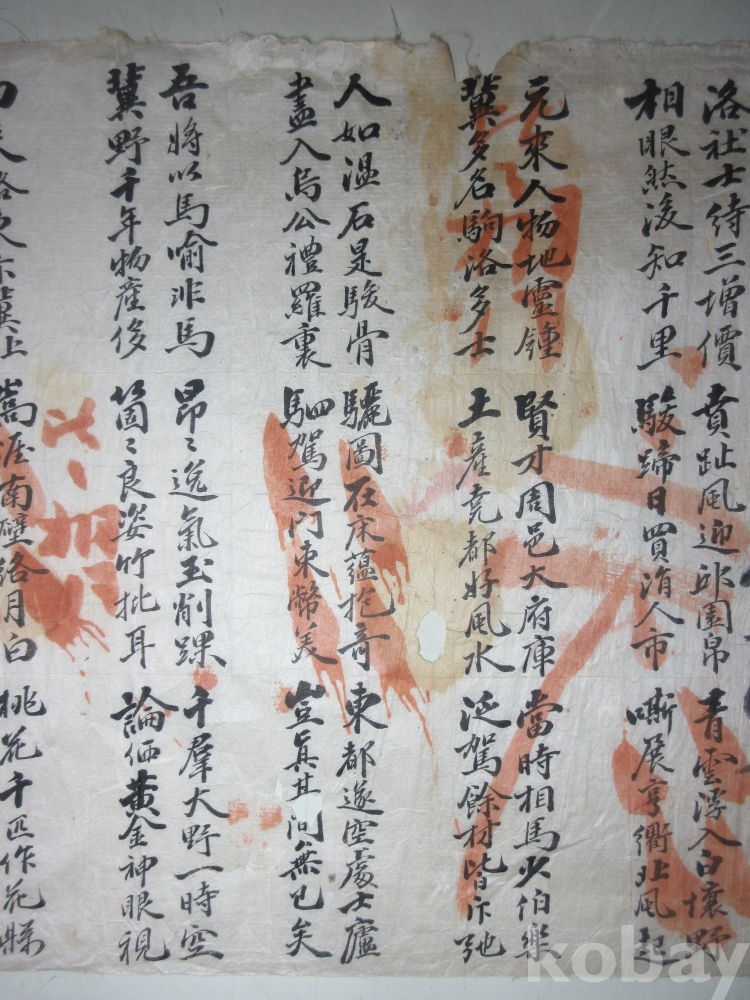 洛社士待三增價
相眼然後知千里
賁趾風迎邱園帛
駿蹄日買洧人市
青雲浮入白壤野
嘶展亨衢北風起
元來人物地靈鍾
冀多名駒洛多士
賢才周邑大府庫
土産堯都好風水
當時相馬火伯樂
泛駕餘材皆泎弛
人如溫石是駿骨
盡入烏公禮羅裏
驪圖在床蘊抱奇
駟駕迎門束幣美
東都遂空處士廬
豈眞其間無已矣
吾將以馬喻非馬
冀野千年物産後
昂〻逸氣玉削踝
箇〻良姿竹批耳
千羣大野一時空
論価黃金神眼視
冀上
嵩涯南壁絡月白
桃花千匹作花縣
kobay